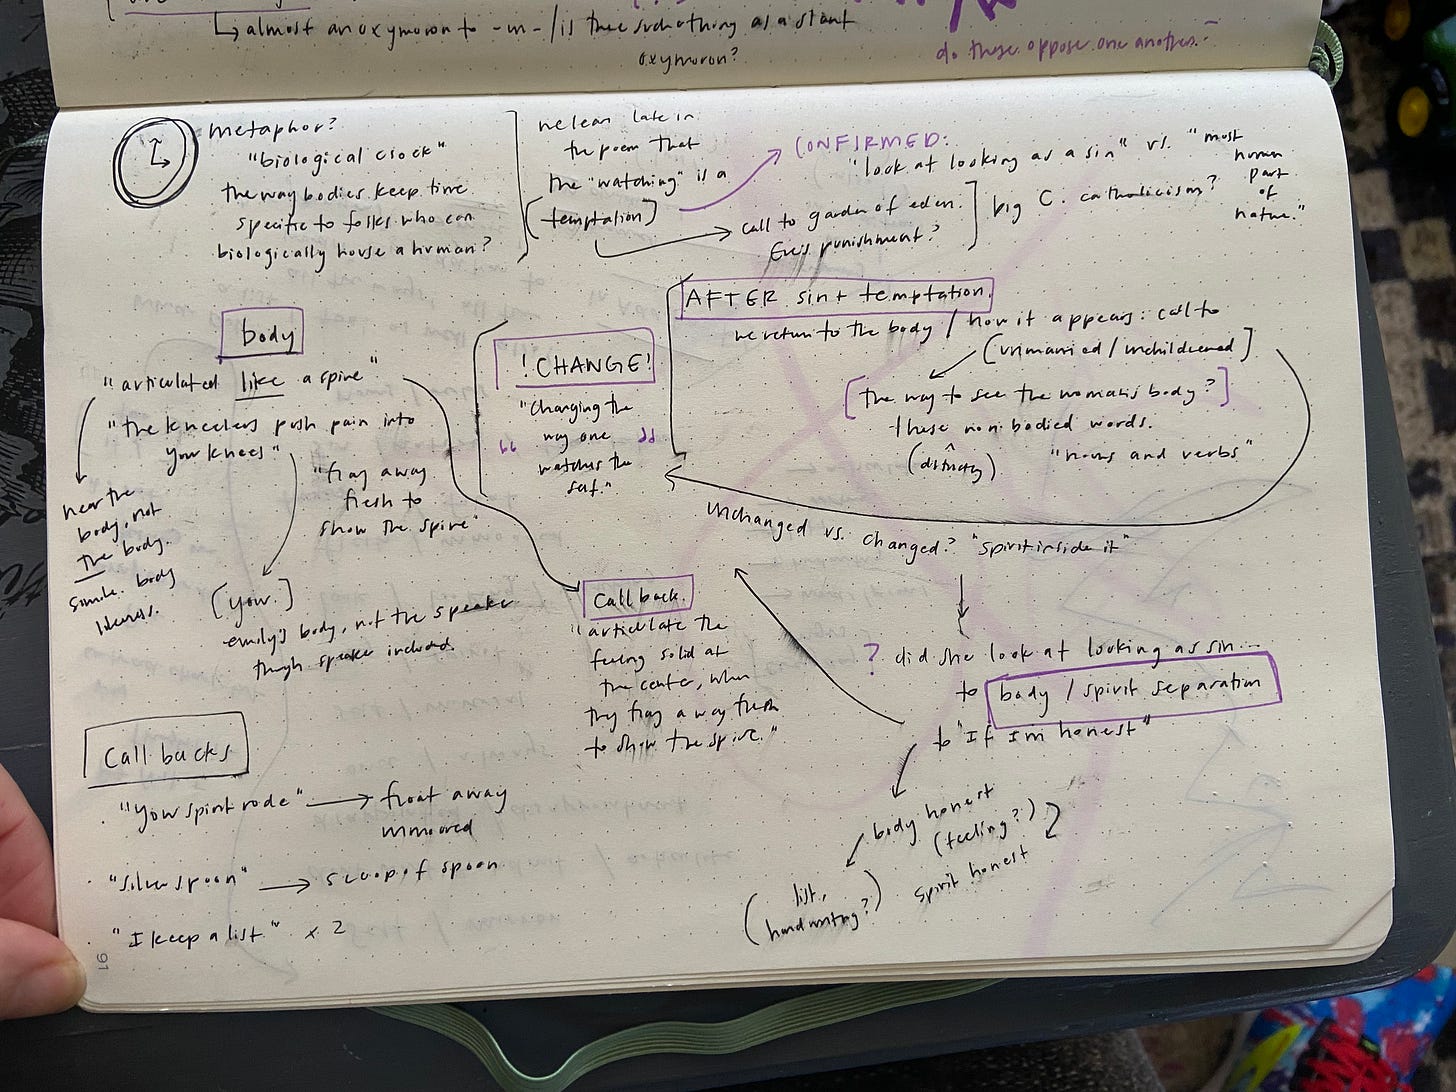 almost an oxymoron to -m- / is there such a thing as a slant
oxymoron?
do these oppose one another?
metaphor?
"biological clock"
the way bodies keep time
specific to folks who can
biologically house a human?
we learn late in
the poem that
the "watching" is a
(temptation)
CONFIRMED:
"look at looking as a sin" vs. "most
human
part
of
nature."
call to garden of eden.
Eve's punishment?
big C. catholicism?
AFTER sin + temptation.
we return to the body / how it appears: call to
(unmarried / unchildrened)
[the way to see the woman's body?]
these non bodied words.
(distinctly)
"nouns and verbs"
body
"articulated like a spine"
"the kneelers push pain into
your knees"
near the
body, not
the body.
simile. body
likeness.
"flay away
flesh to
show the spine"
(your.)
emily's body, not the speaker
though speaker included.
! CHANGE!
"changing the
way one
watches the
self."
unchanged vs. changed? "spirit inside it"
Call back.
"articulate the
feeling solid at
the center, when
they flay away flesh
to show the spine."
? did she look at looking as sin...
to body / spirit separation
to "If I'm honest"
body honest
(feeling?)
spirit honest
(list,
handwriting?)
Call backs
"your spirit rode" → float away
unmoored
"silver spoon" → scoop of spoon
"I keep a list." x 2
91